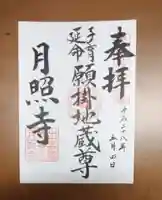 奉拝
平成二十八年
五月四日
子育
延命
願掛地蔵尊
月照寺